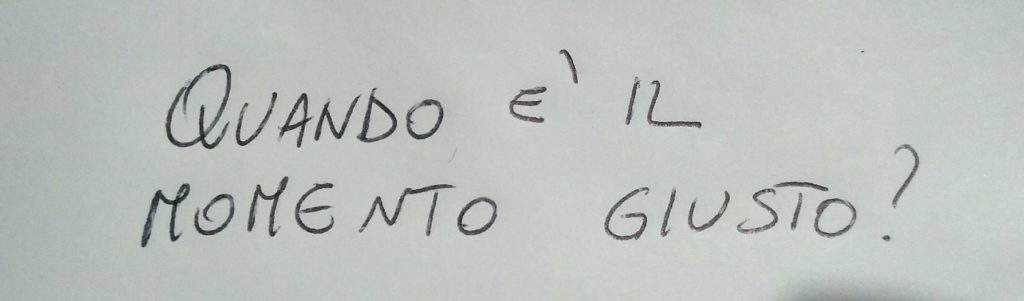 QUANDO E' IL
MOMENTO GIUSTO?